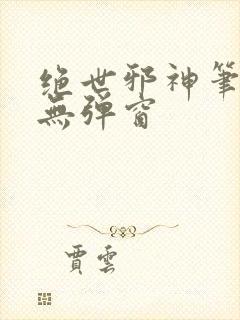 绝世邪神筆
無弹窗
賈雲